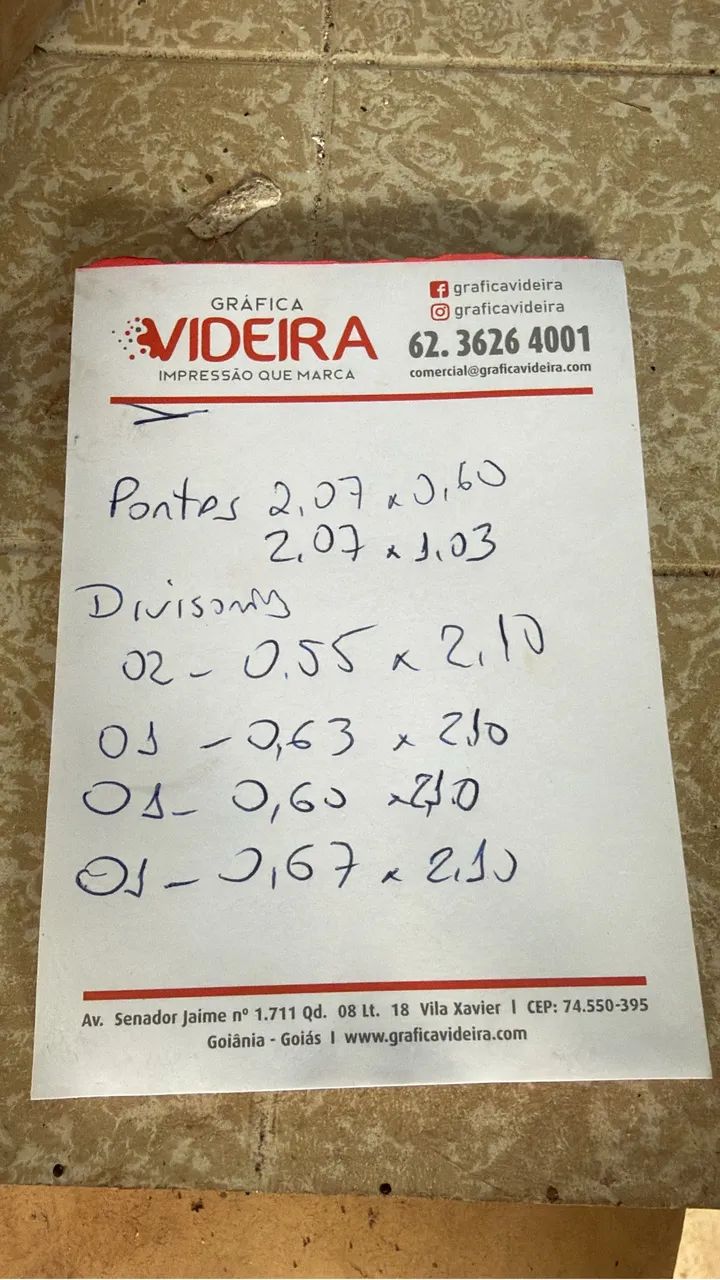 GRÁFICA
VIDEIRA
IMPRESSÃO QUE MARCA
graficavideira
graficavideira
62. 3626 4001
comercial@graficavideira.com
Portas 2,07 x 0,60
2,07 x 1,03
Divisorias
02 - 0,55 x 2,10
01 - 0,63 x 210
01 - 0,60 x 2,10
01 - 0,67 x 2,10
Av. Senador Jaime nº 1.711 Qd. 08 Lt. 18 Vila Xavier | CEP: 74.550-395
Goiânia - Goiás | www.graficavideira.com